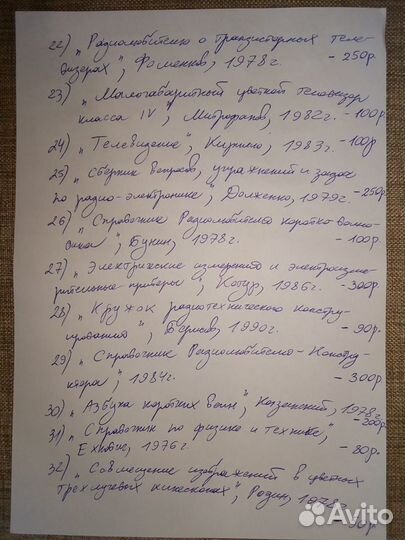 22) „Радиолюбителю о транзисторных теле-
визорах", Фоменков, 1978г. - 250р.
23) „Малогабаритный цветной телевизор
класса IV", Митрофанов, 1982г. - 100р.
24) „Телевидение", Кириллo, 1983г. - 100р.
25) „Сборник вопросов, упражнений и задач
по радио-электронике", Долженко, 1979г. - 250р.
26) „Справочник Радиолюбителю коротко-волно-
вика", Бунин, 1978г. - 100р.
27) „Электрические измерения и электроизме-
рительные приборы", 1986г. - 300р.
28) „Кружок радиотехнического констру-
ирования", Борисов, 1990г. - 90р.
29) „Справочник Радиолюбителю-Констру-
ктора", 1984г. - 300р.
30) „Азбука коротких волн", Казанский, 1978г. - 200р.
31) „Справочник по физике и технике",
Енохович, 1976г. - 80р.
32) „Совмещение изображений в цветных
трехлучевых кинескопах", Родин, 1978г.
Avito